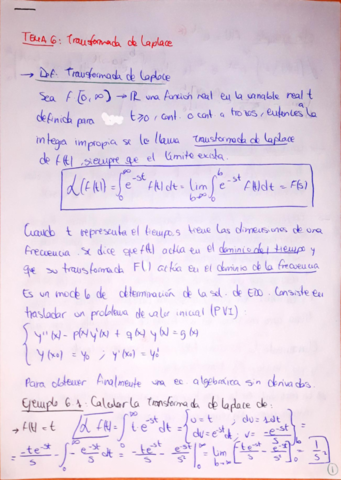 TEMA 6: Transformada de Laplace
→ Def. Transformada de Laplace
Sea f [0,∞) → ℝ una función real en la variable real t
definida para t≥0, cont. o cont a trozos, entonces a la
integral impropia se le llama transformada de laplace
de f(t), siempre que el límite exista.
ℒ(f(t)) = ∫₀^∞ e^-st f(t) dt = lim b→∞ ∫₀^b e^-st f(t) dt = F(s)
Cuando t representa el tiempo, s tiene las dimensiones de una
frecuencia. Se dice que f(t) actúa en el dominio del tiempo y
que su transformada F( ) actúa en el dominio de la frecuencia
Es un modelo de determinación de la sol. de EDO. Consiste en
trasladar un problema de valor inicial (PVI)
{ y''(x) - p(x) y'(x) + q(x) y(x) = g(x)
y(x₀) = y₀ ; y'(x₀) = y₀'
Para obtener finalmente una ec. algebraica sin derivadas.
Ejemplo 6.1. Calcular la transformada de laplace de:
→ f(t) = t ℒ f(t) = ∫₀^∞ t e^-st dt = { u = t ; du = 1dt dv = e^-st dt ; v = -e^-st/s } =
-te^-st/s - ∫₀^∞ -e^-st/s dt = -te^-st/s - e^-st/s² |₀^∞ = lim b→∞ [-te^-st/s - e^-st/s²]₀^b = 1/s²
1